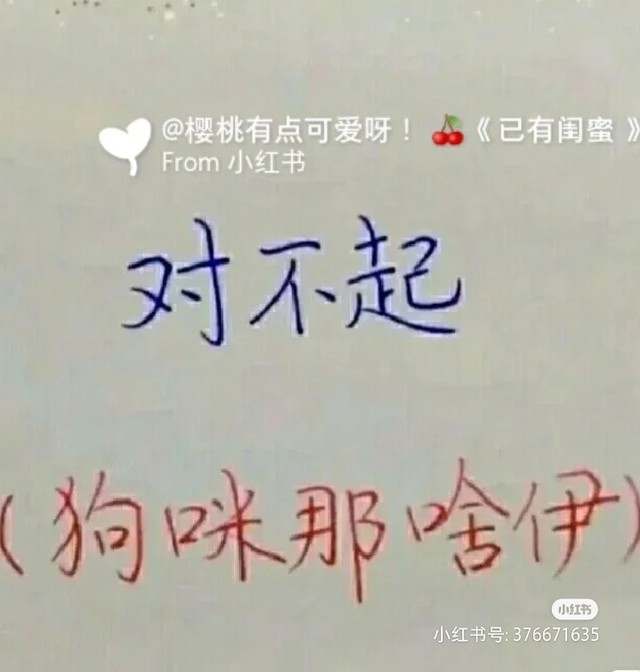 @樱桃有点可爱呀！🍒《已有闺蜜》
From 小红书
对不起
(狗咪那啥伊)
小红书
小红书号: 376671635